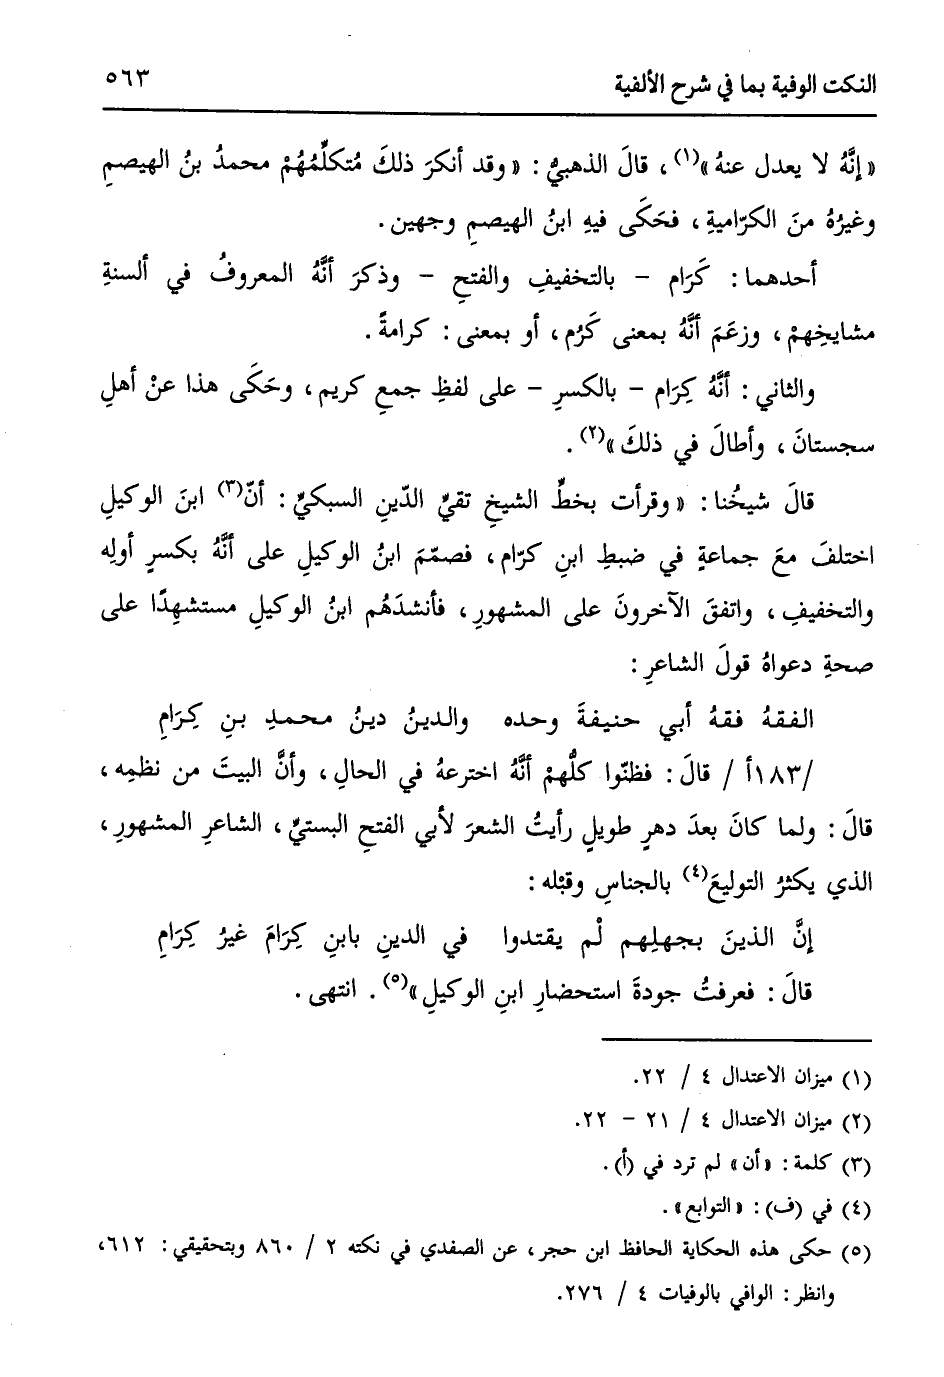 النكت الوفية بما في شرح الألفية ٥٦٣
«إنَّهُ لا يعدل عنهُ»(١)، قالَ الذهبيُّ: «وقد أنكرَ ذلكَ مُتكلِّمُهُمْ محمدُ بنُ الهيصمِ
وغيرُهُ منَ الكرّاميةِ، فحَكَى فيهِ ابنُ الهيصمِ وجهين.
أحدهما: كَرَام - بالتخفيفِ والفتحِ - وذكرَ أنَّهُ المعروفُ في ألسنةِ
مشايخِهمْ، وزعَمَ أنَّهُ بمعنى كَرُم، أو بمعنى: كرامةً.
والثاني: أنَّهُ كِرَام - بالكسرِ - على لفظِ جمعِ كريم، وحَكَى هذا عنْ أهلِ
سجستانَ، وأطالَ في ذلكَ»(٢).
قالَ شيخُنا: «وقرأت بخطِّ الشيخِ تقيِّ الدّينِ السبكيِّ: أنّ(٣) ابنَ الوكيلِ
اختلفَ معَ جماعةٍ في ضبطِ ابنِ كرّام، فصمّمَ ابنُ الوكيلِ على أنَّهُ بكسرِ أولِه
والتخفيفِ، واتفقَ الآخرونَ على المشهورِ، فأنشدَهُم ابنُ الوكيلِ مستشهِدًا على
صحةِ دعواهُ قولَ الشاعرِ:
الفقهُ فقهُ أبي حنيفةَ وحده والدينُ دينُ محمدِ بنِ كِرَامِ
/١٨٣أ/ قالَ: فظنّوا كلُّهمْ أنَّهُ اخترعهُ في الحالِ، وأنَّ البيتَ من نظمِه،
قالَ: ولما كانَ بعدَ دهرٍ طويلٍ رأيتُ الشعرَ لأبي الفتحِ البستيِّ، الشاعرِ المشهورِ،
الذي يكثرُ التوليعَ(٤) بالجناسِ وقبْله:
إنَّ الذينَ بجهلِهم لْم يقتدوا في الدينِ بابنِ كِرَامَ غيرُ كِرَامِ
قالَ: فعرفتُ جودةَ استحضارِ ابنِ الوكيلِ»(٥). انتهى.
(١) ميزان الاعتدال ٤ / ٢٢.
(٢) ميزان الاعتدال ٤ / ٢١ - ٢٢.
(٣) كلمة: «أن» لم ترد في (أ).
(٤) في (ف): «التوابع».
(٥) حكى هذه الحكاية الحافظ ابن حجر، عن الصفدي في نكته ٢ / ٨٦٠ وبتحقيقي: ٦١٢،
وانظر: الوافي بالوفيات ٤ / ٢٧٦.